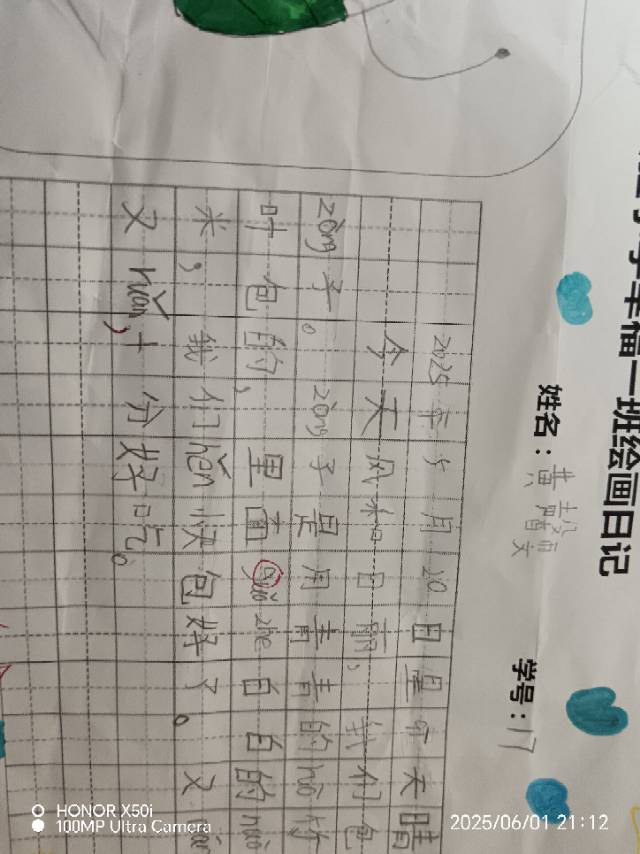 幸福一班绘画日记
姓名：黄 文 学号：17
2025年5月20日星 天晴
今天风和日丽，我们包
zòng子。zòng子是用青青的 竹
叶包的，里面guǒ zhe白白的nuò
米，我们hěn快包好了。又
又ruǎn，十分好吃。
HONOR X50i
100MP Ultra Camera
2025/06/01 21:12